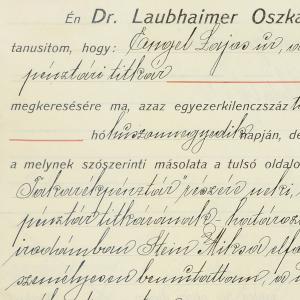 Én Dr. Laubhaimer Oszká
tanusítom, hogy: Engel Lajos úr, a
pénztári titkár
megkeresésére ma, azaz egyezerkilenczszáz
hó huszonnegyedik napján, de
a melynek szószerinti másolata a tulsó oldalo
Takarékpénztár" részére neki,
pénztár titkárának - határoz
irodámban Stein Miksa elf
személyesen bemutattam, a